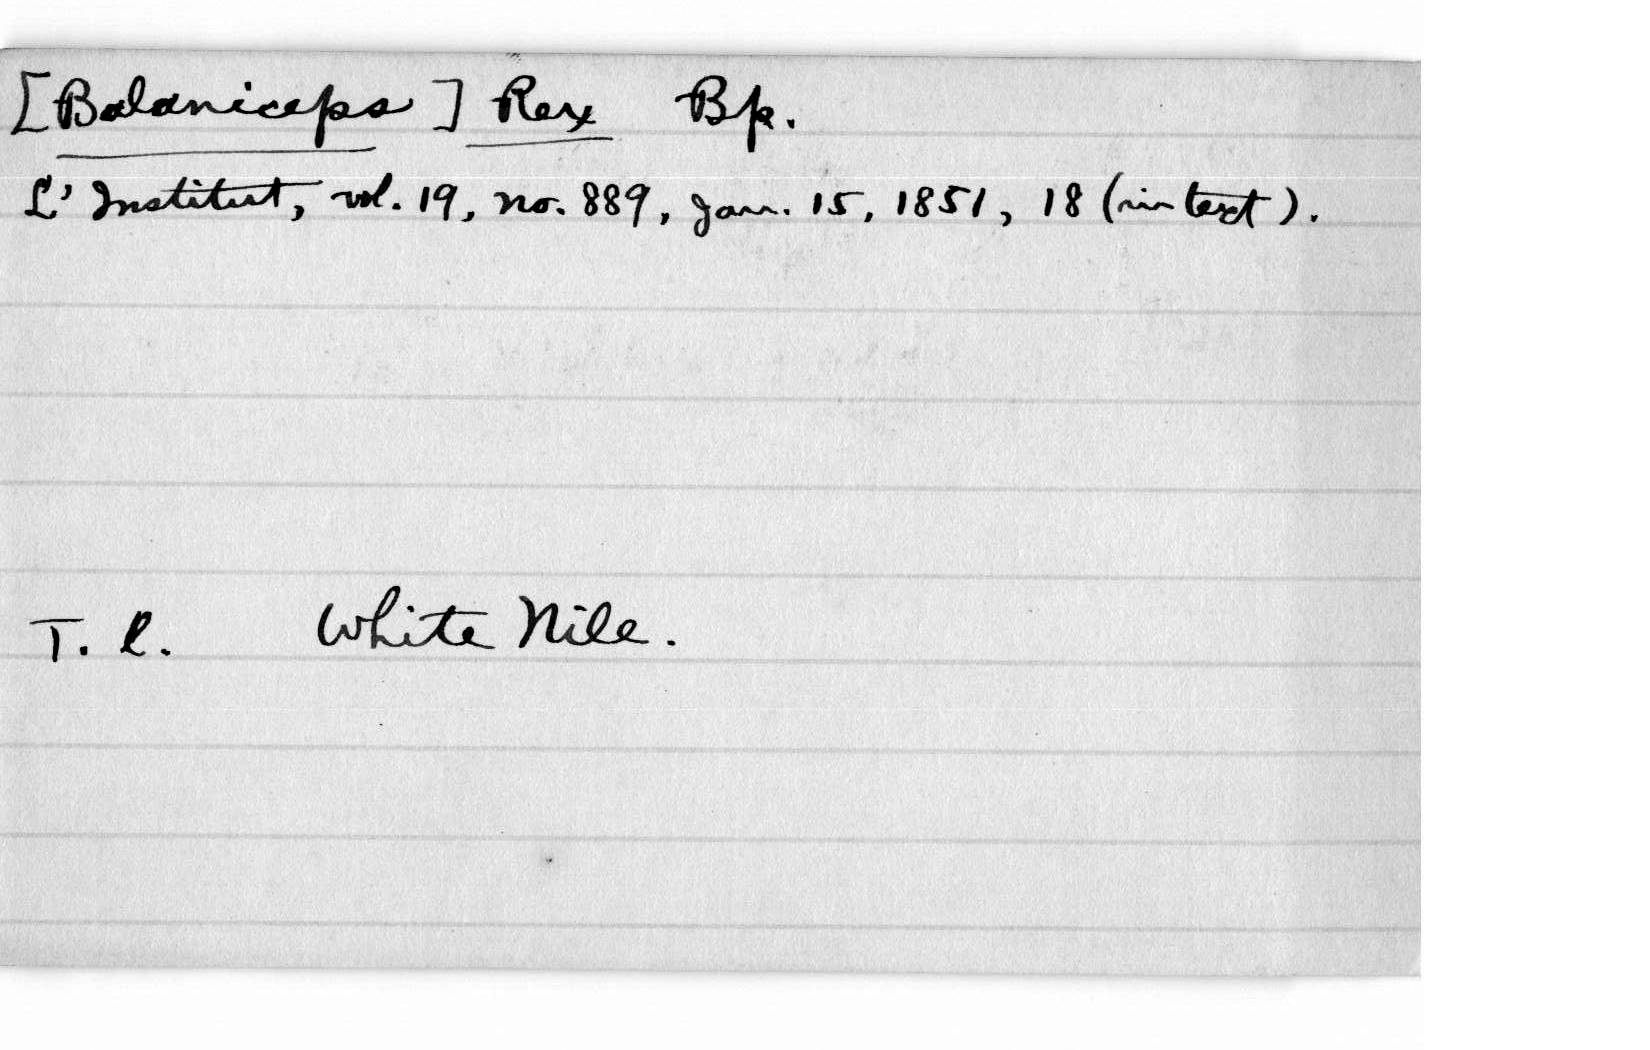 [Balaniceps] Rex Bp.
L'Institut, vol. 19, no. 889, Jan. 15, 1851, 18 (in text).
T. l. White Nile.